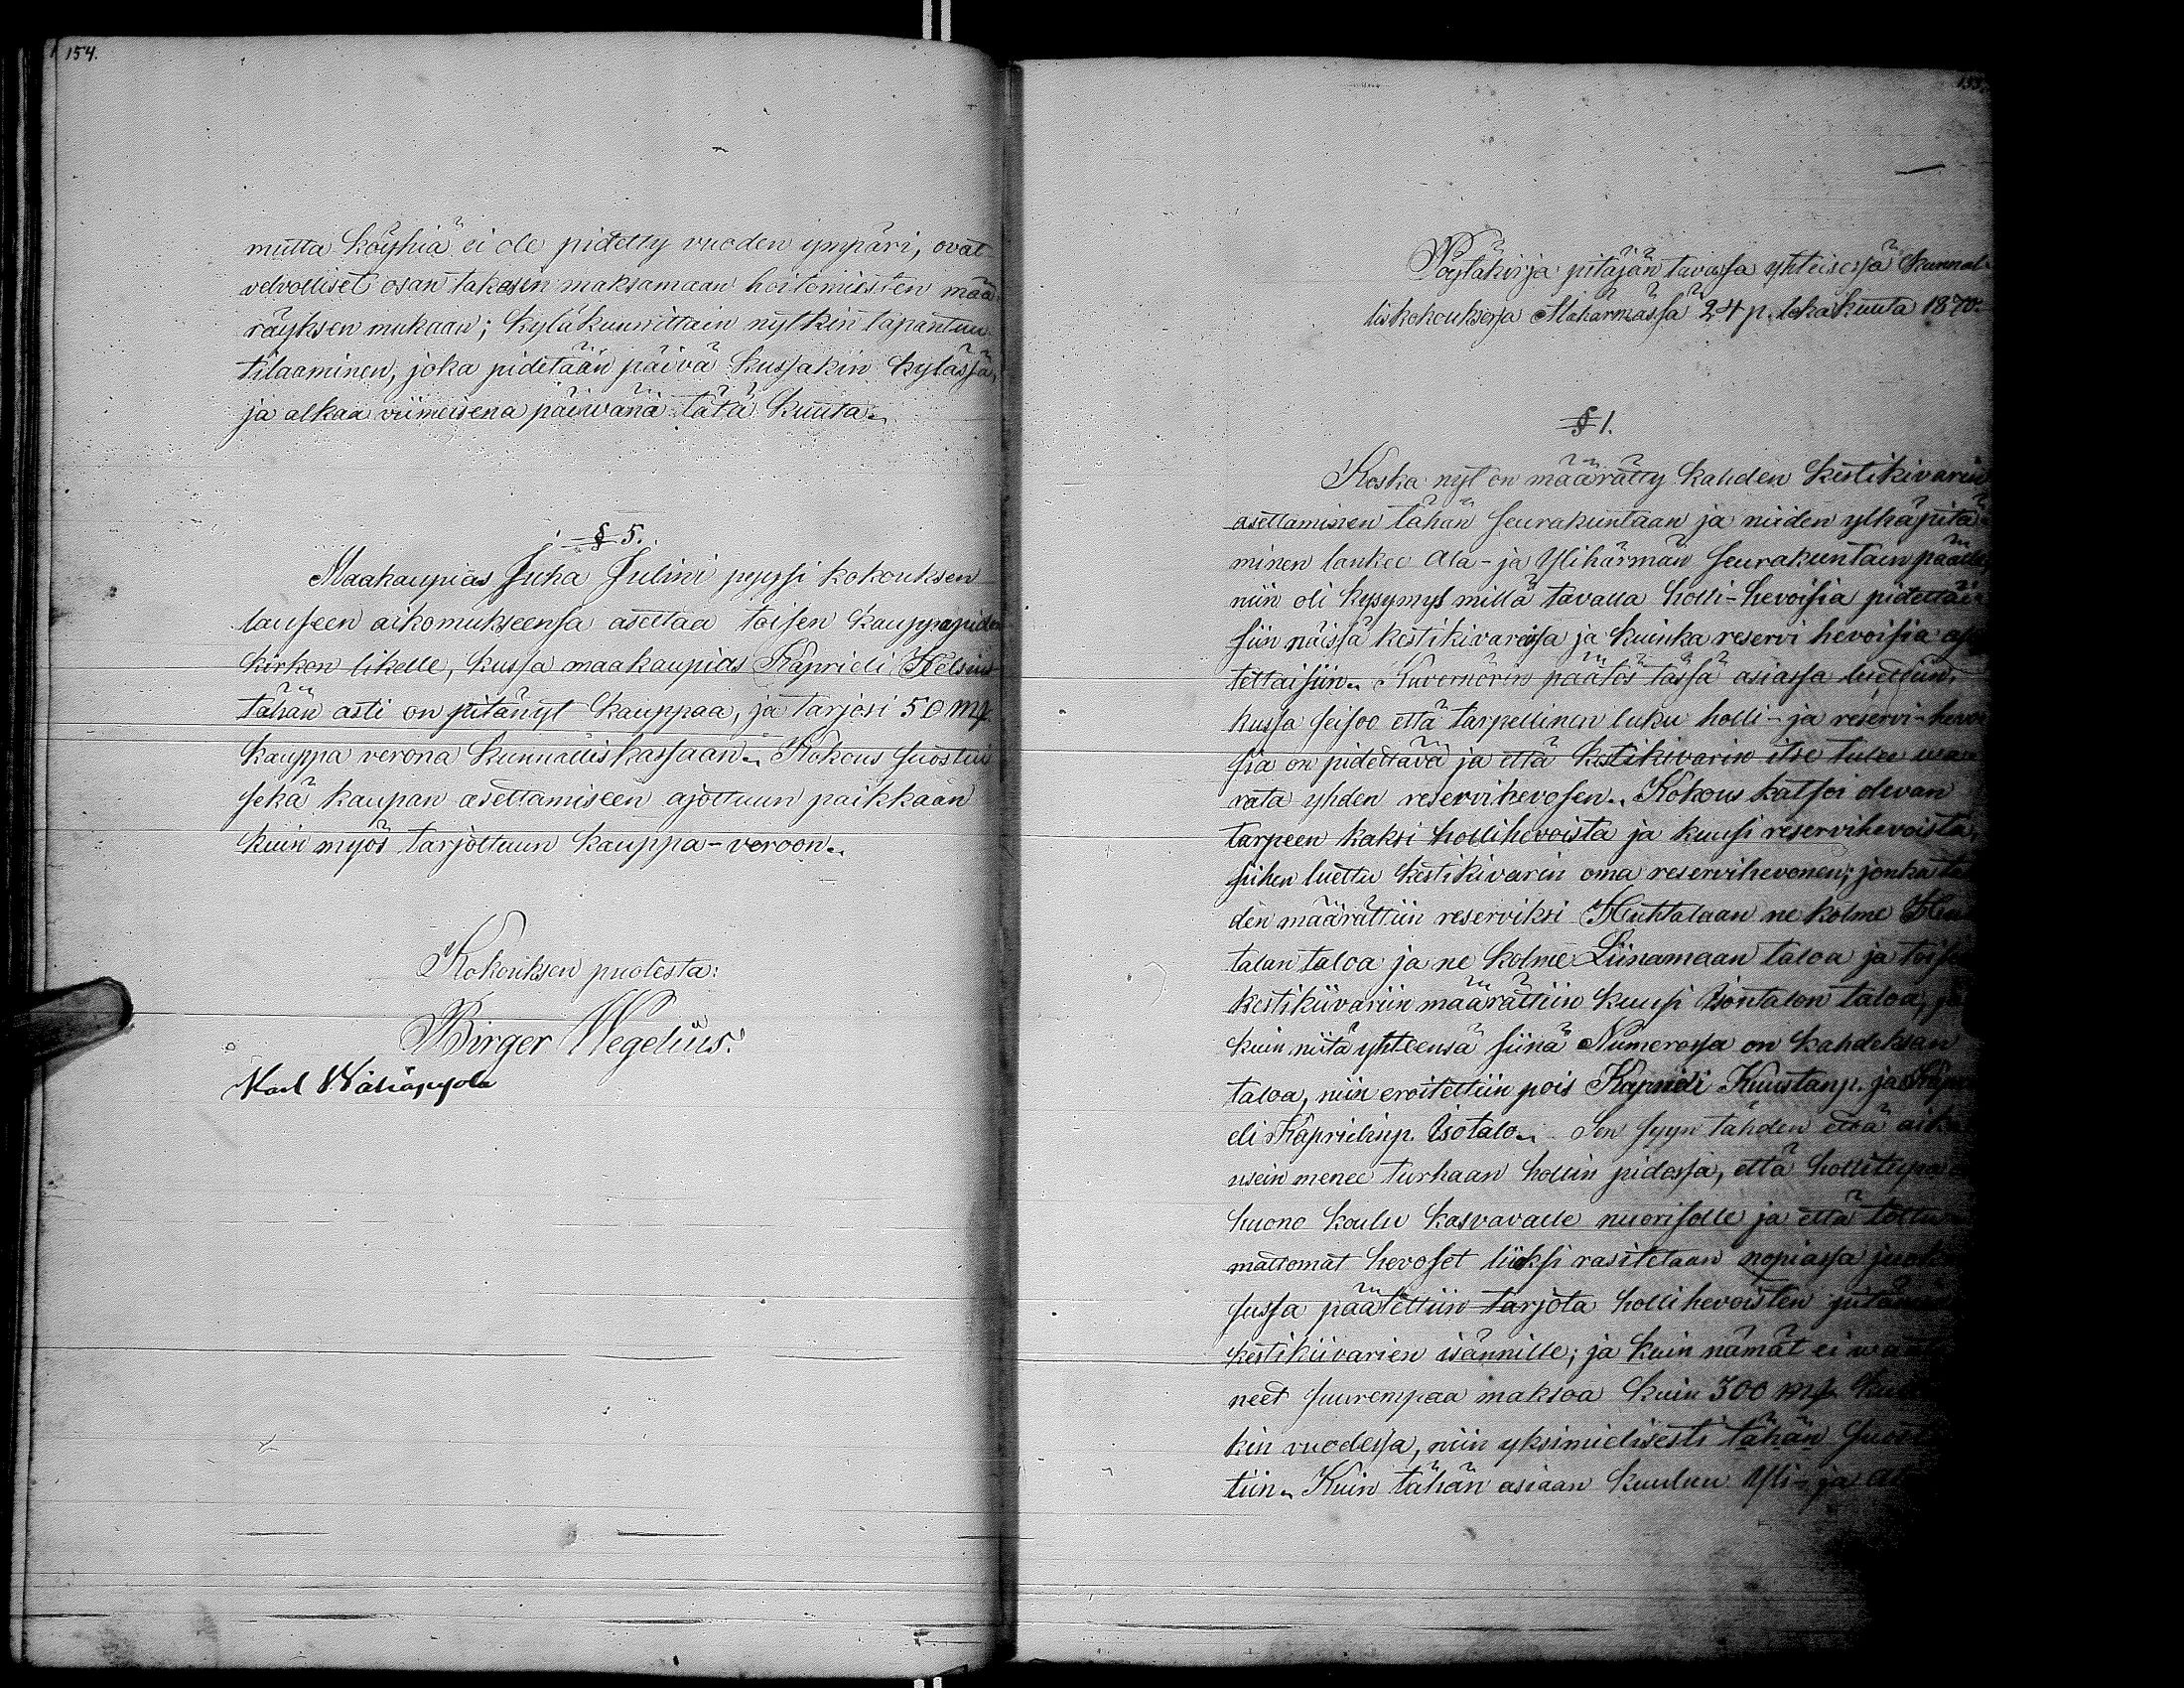 154.
mutta köyhiä ei ole pidetty vuoden ympäri, ovat
velvolliset osan takasin maksamaan hoitomiesten mää-
räyksen mukaan; kyläkunnittain nytkin tapahtuu
tilaaminen, joka pidetään päivä kussakin kylässä,
ja alkaa viimeisenä päiwänä tätä kuuta.
§ 5.
Maakaupias Juha Julini pyysi kokouksen
lauseen aikomukseensa asettaa toisen kauppapuidin
kirkon likelle, kussa maakaupias Kaprieli Helsin
tähän asti on pitänyt kauppaa, ja tarjosi 50 mk
kauppa verona kunnalliskassaan. Kokous suostui
sekä kaupan asettamiseen ajottuun paikkaan
kuin myös tarjottuun kauppa-veroon.
Kokouksen puolesta:
Birger Wegelius.
Karl Wähäpyola
155.
Pöytäkirja pitäjän tuvassa yhteisessä kunnal-
liskokouksessa Alahärmässä 24 p. lokakuuta 1870.
§ 1.
Koska nyt on määrätty kahden kestikivarin
asettaminen tähän seurakuntaan ja niiden ylläpitä-
minen lankee Ala- ja Ylihärmän seurakuntain päälle
niin oli kysymys millä tavalla holli-hevoisia pidettäi-
siin näissä kestikivareissa ja kuinka reservi hevoisia ase
tettaisiin. Kuvernörin päätös tässä asiassa luettiin,
kussa seisoo että tarpellinen luku holli- ja reservi-hevoi
sia on pidettävä ja että kestikivarin itse tulee waa
rata yhden reservihevosen. Kokous katsoi olevan
tarpeen kaksi hollihevoista ja kuusi reservihevoista,
siihen luettu kestikivarin oma reservihevonen; jonka täh
den määrättiin reserviksi Huhtalaan ne kolme Huh
talan taloa ja ne kolme Liinamaan taloa ja toiseen
kestikiivariin määrättiin kuusi Isontalon taloa, ja
kuin niitä yhteensä siinä Numerossa on kahdeksan
taloa, niin eroitettiin pois Kaprieli Kuustanp. ja Kapri
eli Kaprielinp. Isotalo. Sen syyn tähden että aika
usein menee turhaan hollin pidossa, että hollitupa
huono koulu kasvavalle nuorisolle ja että tottu
mattomat hevoset liiksi rasitetaan nopiassa juok
sussa päätettiin tarjota hollihevoisten pitäminen
kestikiivarien isännille; ja kuin nämät ei waati
neet suurempaa maksoa kuin 300 mk kum
kin vuodessa, niin yksimielisesti tähän suostut
tiin. Kuin tähän asiaan kuuluu Yli- ja Ala